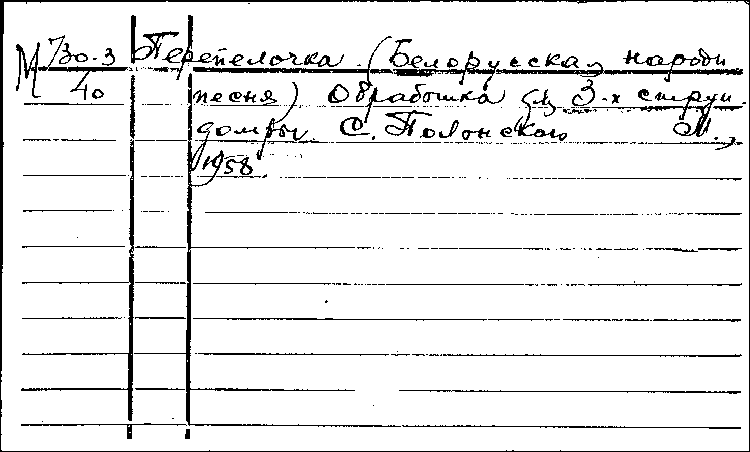 М 730.3 Перепелочка. (Белорусская народн
40 песня) Обработка дл 3-х струн.
домры. С. Полонского М.,
1958.